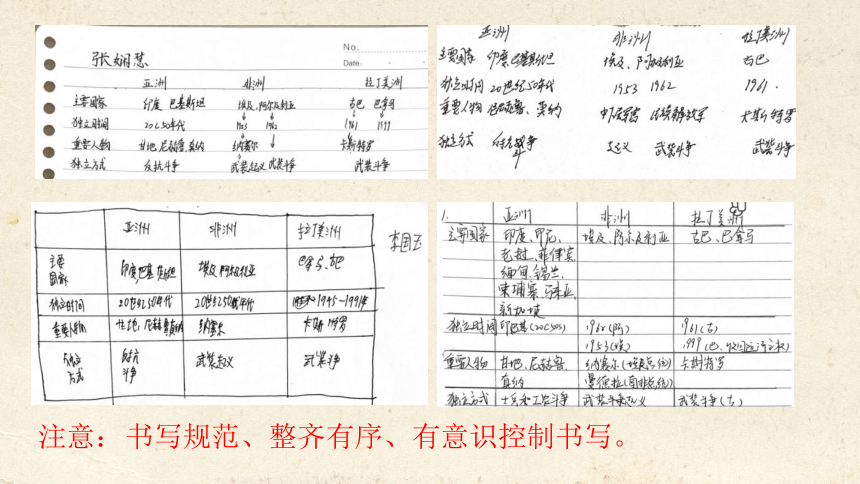 张娴慧
No.
Date
亚洲 非洲 拉丁美洲
主要国家 印度 巴基斯坦 埃及、阿尔及利亚 古巴 巴拿马
独立时间 20C50年代 1953 1962 1961 1999
重要人物 甘地、尼赫鲁、真纳 纳赛尔 卡斯特罗
独立方式 反抗斗争 武装起义 武装斗争 武装斗争
亚洲 非洲 拉丁美洲
主要国家 印度、巴基斯坦 埃及、阿尔及利亚 古巴
独立时间 20世纪50年代 1953 1962 1961.
重要人物 尼赫鲁、真纳 民族解放军 卡斯特罗
独立方式 斗争 起义 武装斗争 武装斗争
亚洲 非洲 拉丁美洲
主要国家 印度,巴基斯坦 埃及,阿尔及利亚 巴拿马、古巴
独立时间 20世纪50年代 20世纪50年代 1945-1991年
重要人物 甘地,尼赫鲁真纳 纳赛尔 卡斯特罗
独立方式 斗争 武装起义 武装斗争
1. 亚洲 非洲 拉丁美洲
主要国家 印度、印尼、 埃及、阿尔及利亚 古巴、巴拿马
老挝、菲律宾
缅甸、锡兰、
柬埔寨、马来亚、
新加坡
独立时间 印巴基(20C50s) 1962(阿) 1961(古)
1953(埃) 1999(巴、收回运河主权)
重要人物 甘地、尼赫鲁、 纳赛尔(埃及总统) 卡斯特罗
真纳 曼德拉(南非总统)
独立方式 士兵和工农斗争 武装斗争起义 武装斗争(古)
注意：书写规范、整齐有序、有意识控制书写。